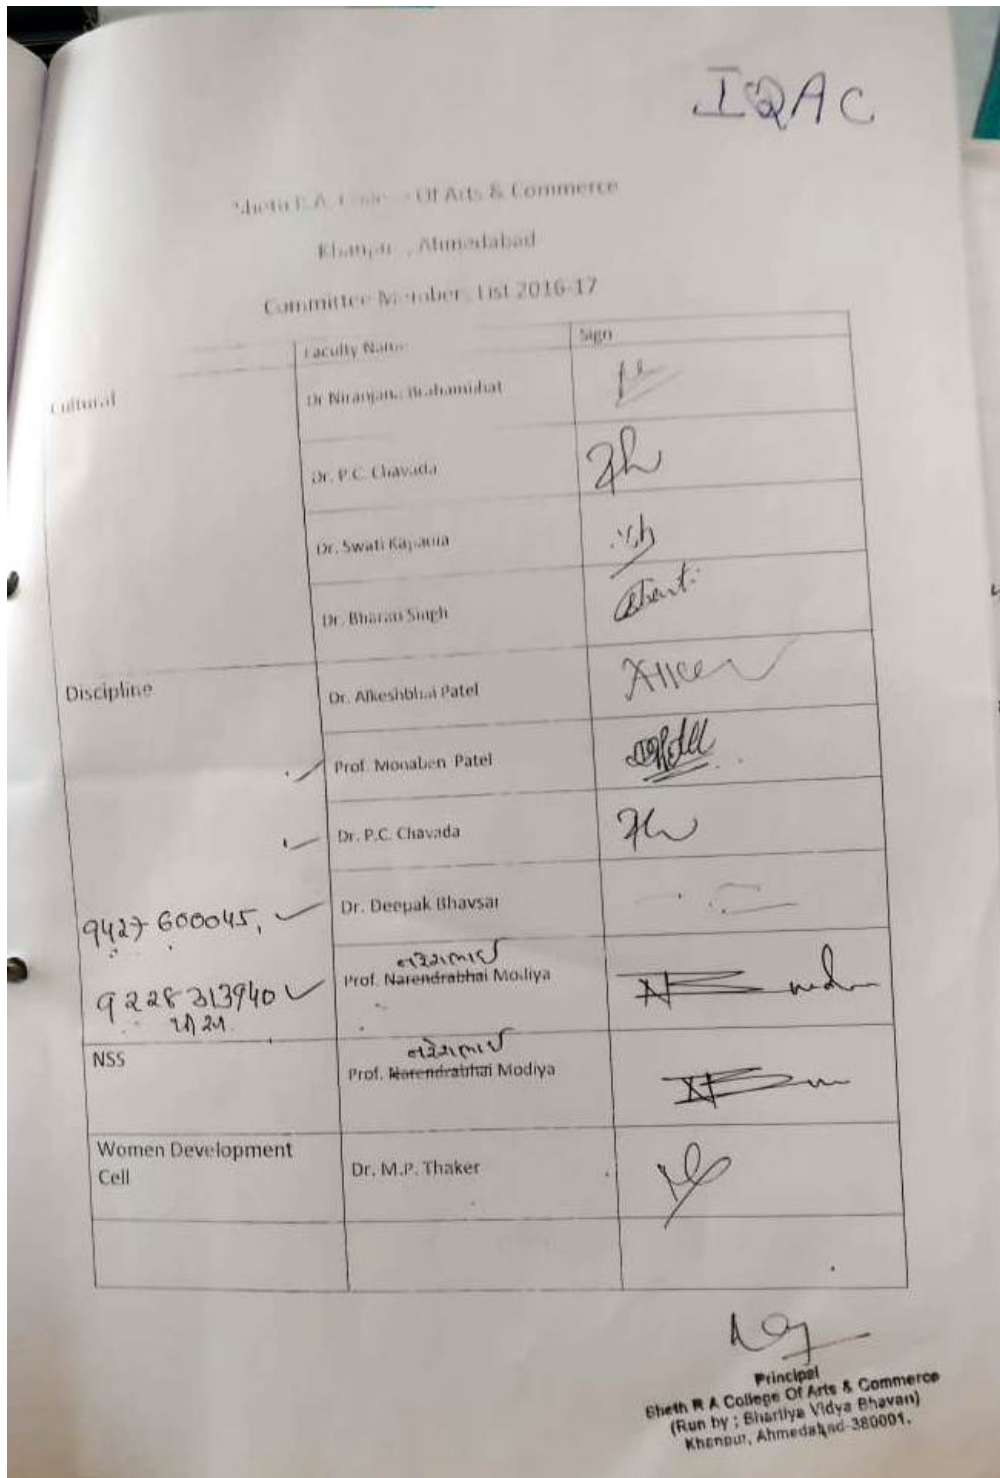 IQAC
Sheth R A College Of Arts & Commerce
Khanpur , Ahmedabad
Committee Members List 2016-17
Faculty Name
Sign
Cultural
Dr Niranjana Brahambhat
Dr. P.C. Chavada
Dr. Swati Kapadia
Dr. Bharati Singh
Discipline
Dr. Alkeshbhai Patel
Prof. Monaben Patel
Dr. P.C. Chavada
9427600045,
Dr. Deepak Bhavsar
નરેશભાઈ
Prof. Narendrabhai Modiya
9228313940
NSS
નરેશભાઈ
Prof. Narendrabhai Modiya
Women Development
Cell
Dr. M.P. Thaker
Principal
Sheth R A College Of Arts & Commerce
(Run by : Bhartiya Vidya Bhavan)
Khanpur, Ahmedabad-380001.